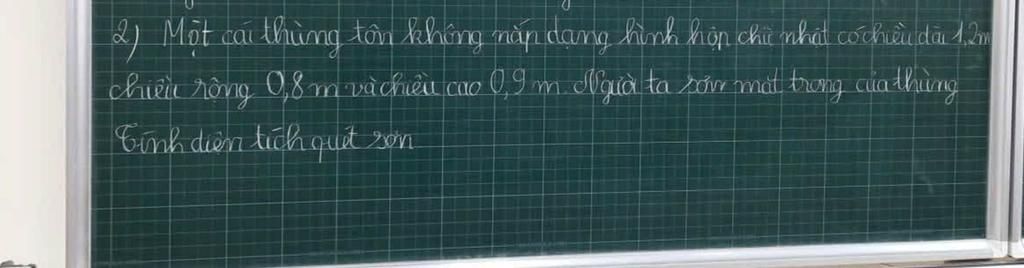 2) Một cái thùng tôn không nắp dạng hình hộp chữ nhật có chiều dài 1,2m
chiều rộng 0,8 m và chiều cao 0,9 m. Người ta sơn mặt trong của thùng
Tính diện tích quét sơn